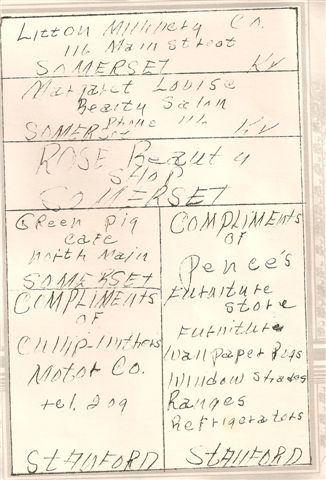 Litton Millinery Co.
116 Main Street
SOMERSET Ky
Margaret Louise
Beauty Salon
Phone 116
SOMERSET Ky
ROSE Beauty
SHOP
SOMERSET
Green pig
cafe
north Main
SOMERSET
COMPLIMENTS
OF
Motor Co.
tel. 209
STANFORD
COMPLIMENTS
OF
Pence's
Furniture
store
Furniture
Wallpaper Rugs
Window Shades
Ranges
Refrigerators
STANFORD